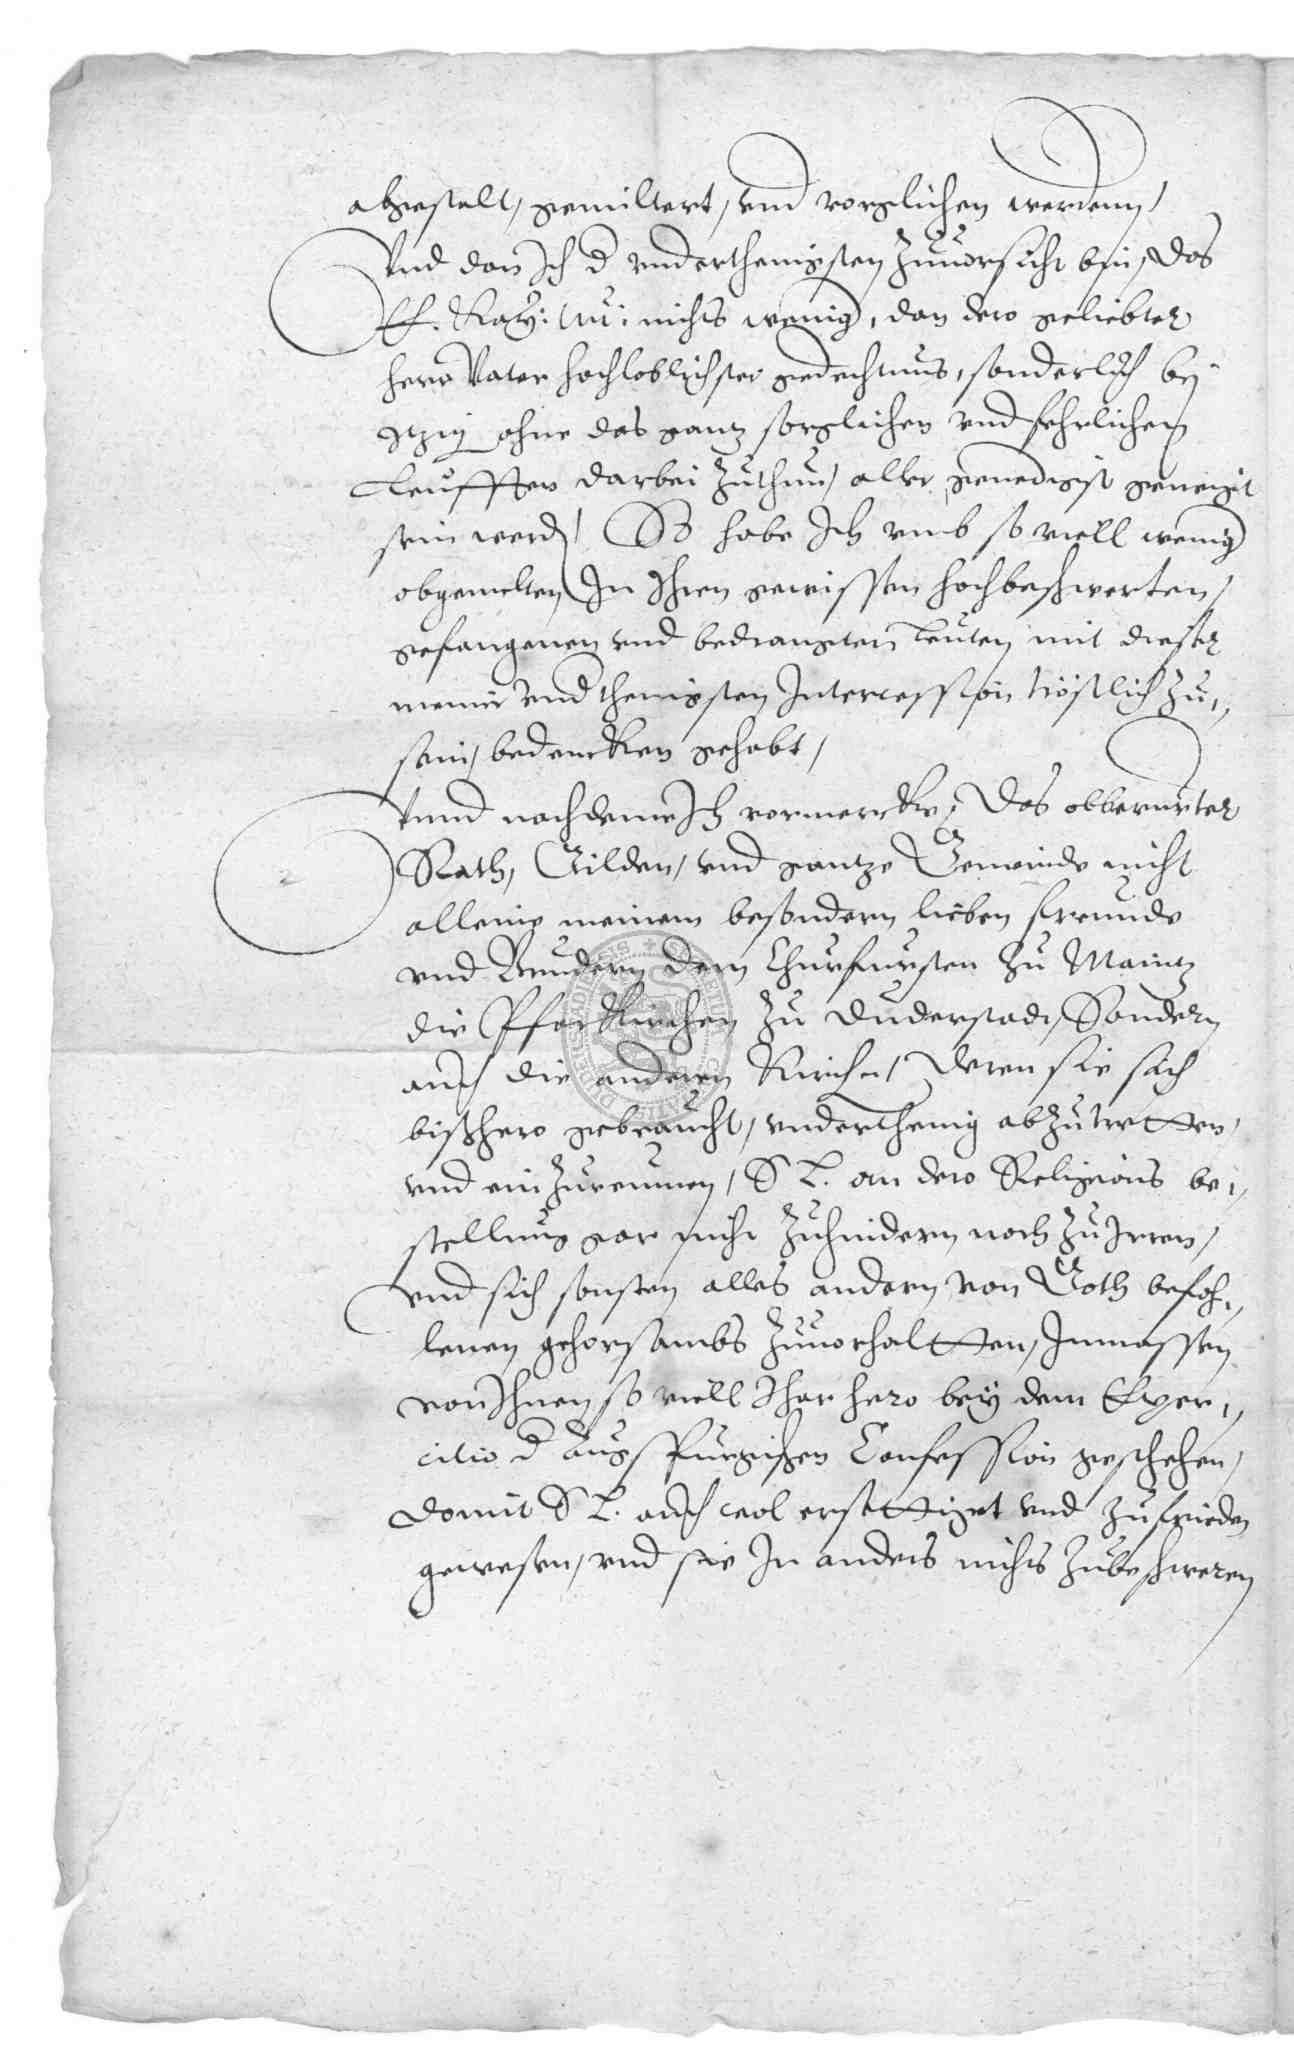 abgestelt, gemiltert, vnd vorglichen werdenn,
Vnd dan Ich d vnderthenigsten Zuuorsicht bin, das
E. Kay: Mt: nichts wenig, dan dero geliebter
herr Vater hochloblichster gedechtnus, sonderlich bej
Itzig ohne das gantz sorglichen vnd fehrlichen
Leufften darbei Zuthun, aller genedigst geneigt
sein werd, So habe Ich vmb so viell wenig
obgemelten In Ihren gewissen hochbeschwerten,
gefangenen vnd bedrangten Leuten mit dieser
meiner vndthenigsten Intercession tröstlich Zu,,
sein, bedencken gehabt,
Vnnd nachdeme Ich vormercke, Das obberurter
Rath, Gilden, vnd gantze Gemeinde nicht
alleine meinem besondern lieben freunde
vnd Brudern dem Churfursten Zu Maintz
die Pfarkirchen Zu Duderstad, Sondern
auch die anderen Kirchen, deren sie sich
bißhero gebraucht, vnderthenig abZutretten,
vnd ein Zureumen, S L. an dero Religions be,,
stellung gar nicht Zuhindern noch Zu Irren,
vnd sich sonsten alles andern von Goth befoh,,
lenen gehorsambs Zuuorhaltten, Inmassen
von Ihnen so viell Ihar hero bey dem Exer,,
citio d Augspurgischen Confession geschehen,
domit S L. auch wol ersettiget vnd Zufrieden
gewesen, vnd sie In anders nichts Zubeschweren